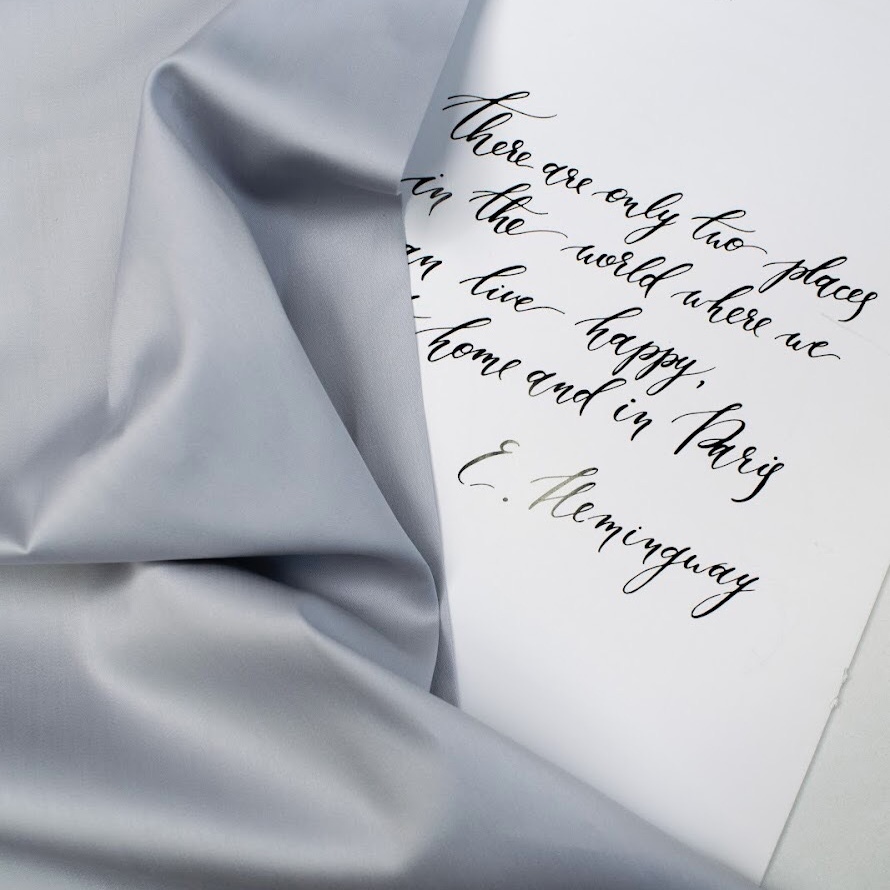 there are only two places
in the world where we
an live happy,
home and in Paris
E. Hemingway